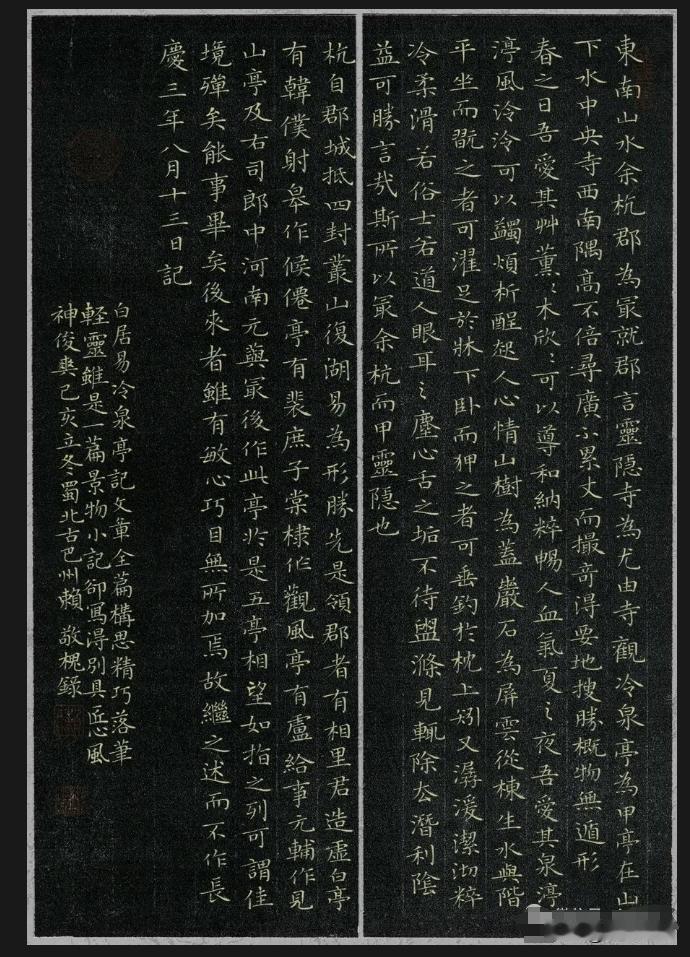 東南山水余杭郡為冣就郡言靈隠寺為尤由寺觀冷泉亭為甲亭在山
下水中央寺西南隅髙不倍尋廣不累丈而撮竒得要地搜勝概物無遁形
春之日吾愛其艸薰〻木欣〻可以導和納粹暢人血氣夏之夜吾愛其泉渟
渟風泠泠可以蠲煩析酲起人心情山樹為蓋巖石為屏雲從棟生水與階
平坐而翫之者可濯足於牀下卧而狎之者可垂釣於枕上矧又潺湲潔沏粹
冷柔滑若俗士若道人眼耳之塵心舌之垢不待盥滌見輒除去潛利陰
益可勝言㦲斯所以冣余杭而甲靈隠也
杭自郡城抵四封叢山復湖易為形勝先是領郡者有相里君造虛白亭
有韓僕射皋作候僊亭有裴庶子棠棣作觀風亭有盧給事元輔作見
山亭及右司郎中河南元藇冣後作此亭扵是五亭相望如指之列可謂佳
境殫矣能事畢矣後來者雖有敏心巧目無所加焉故繼之述而不作長
慶三年八月十三日記
白居易冷泉亭記文章全篇構思精巧落筆
輕靈雖是一篇景物小記卻寫得別具匠心風
神俊爽己亥立冬蜀北古巴州賴敬槐錄